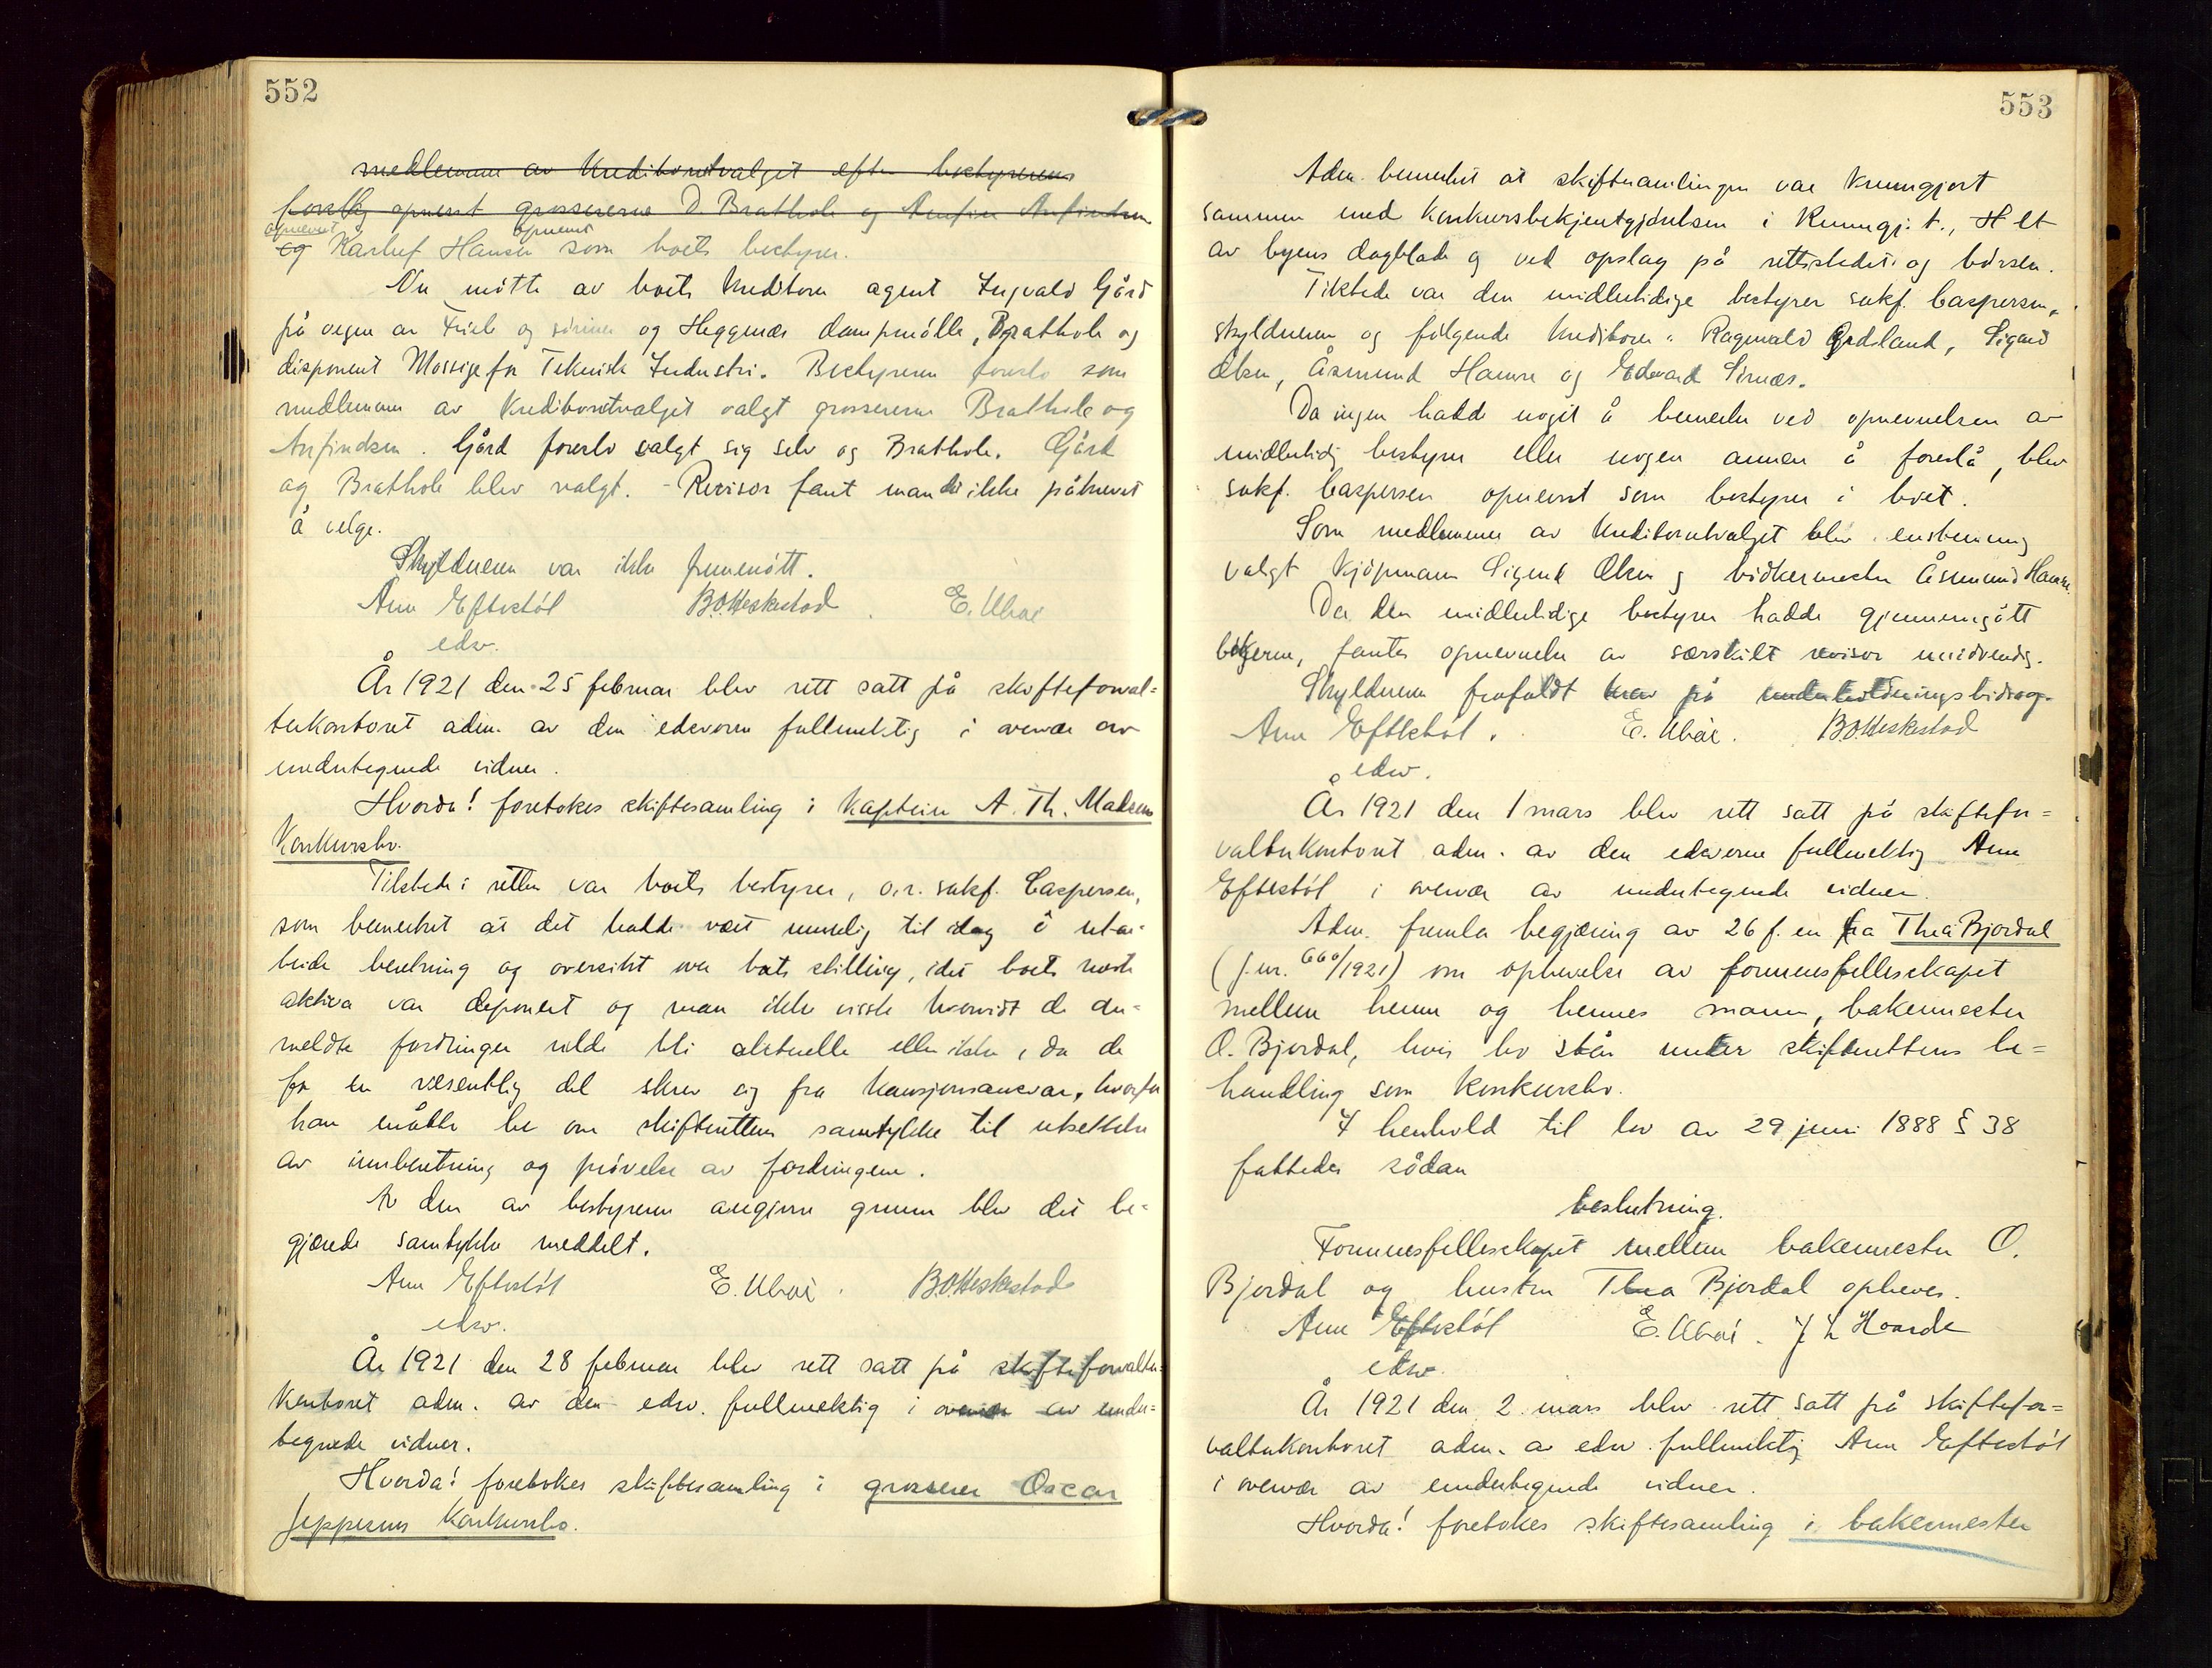 552
medlemmer av Kreditorutvalget efter bestyrerens
forslag opnevnt grossererne D. Brathole og Amfin Anfindsen
opnevnt opnevnt
og Karluf Hansen som boets bestyrer.
Nu møtte av boets kreditorer agent Ingvald Gård
på vegne av Friele og sønner og Heggenæs dampmølle, Brathole og
disponent Mossige for Teknisk Industri. Bestyreren foreslo som
medlemmer av Kreditorutvalget valgt grossererne Brathole og
Anfindsen. Gård foreslo valgt sig selv og Brathole. Gård
og Brathole blev valgt. - Revisor fant man ikke påkrevet
å velge.
Skyldneren var ikke fremmøtt.
Arne Eftestøl B.O.Heskestad. E. Ubøe
edsv.
År 1921 den 25 februar blev rett satt på skifteforval=
terkontoret adm. av den edsvorne fullmektig i overvær av
undertegnede vidner.
Hvorda! foretokes skiftesamling i Kaptein A. Th. Madsens
Konkursbo.
Tilstede i retten var boets bestyrer, o.r. sakf. Caspersen,
som bemerket at det hadde vært umulig til idag å utar-
beide beretning og oversikt over boets stilling, idet boets meste
aktiva var deponert og man ikke visste hvorvidt de an=
meldte fordringer vilde bli aktuelle eller ikke, da de
for en væsentlig del skrev sig fra kausjonsansvar, hvorfor
han måtte be om skifterettens samtykke til utsettelse
av innberetning og prøvelse av fordringene.
Av den av bestyreren angivne grunn blev det be-
gjærede samtykke meddelt.
Arne Eftestøl E. Ubøe. B.O.Heskestad
edsv.
År 1921 den 28 februar blev rett satt på skifteforvalter-
kontoret adm. av den edsv. fullmektig i overvær av under=
tegnede vidner.
Hvorda! foretokes skiftesamling i grosserer Oscar
Jeppesens Konkursbo.
553
Adm. bemerket at skiftesamlingen var kunngjort
sammen med Konkursbekjentgjørelsen i Kunngj.t., 1 et
av byens dagblade og ved opslag på rettsstedet og børsen.
Tilstede var den midlertidige bestyrer sakf. Caspersen,
skyldneren og følgende kreditorer: Ragnvald Godeland, Sigurd
Olsen, Åsmund Hamre og Edvard Sirnæs.
Da ingen hadde noget å bemerke ved opnevnelsen av
midlertidig bestyrer eller nogen annen å foreslå, blev
sakf. Caspersen opnevnt som bestyrer i boet.
Som medlemmer av Kreditorutvalget blev enstemmig
valgt kjøpmann Sigurd Olsen og bødkermester Åsmund Hamre.
Da den midlertidige bestyrer hadde gjennemgått
bøkerne, fantes opnevnelse av særskilt revisor unødvendig.
Skyldneren frafaldt krav på underholdningsbidrag.
Arne Eftestøl. E. Ubøe. B.O.Heskestad
edsv.
År 1921 den 1 mars blev rett satt på skiftefor=
valterkontoret adm. av den edsvorne fullmektig Arne
Eftestøl i overvær av undertegnede vidner.
Adm. fremla begjæring av 26 f. m. fra Thea Bjordal
(j.nr. 660/1921) om ophevelse av formuesfellesskapet
mellem henne og hennes mann, bakermester
O. Bjordal, hvis bo står under skifterettens be=
handling som Konkursbo.
I henhold til lov av 29 juni 1888 § 38
fattedes sådan
beslutning.
Formuesfellesskapet mellem bakermester O.
Bjordal og hustru Thea Bjordal opheves.
Arne Eftestøl E. Ubøe. J L Haarde
edsv.
År 1921 den 2 mars blev rett satt på skiftefor=
valterkontoret adm. av edsv. fullmektig Arne Eftestøl
i overvær av undertegnede vidner.
Hvorda! foretokes skiftesamling i bakermester